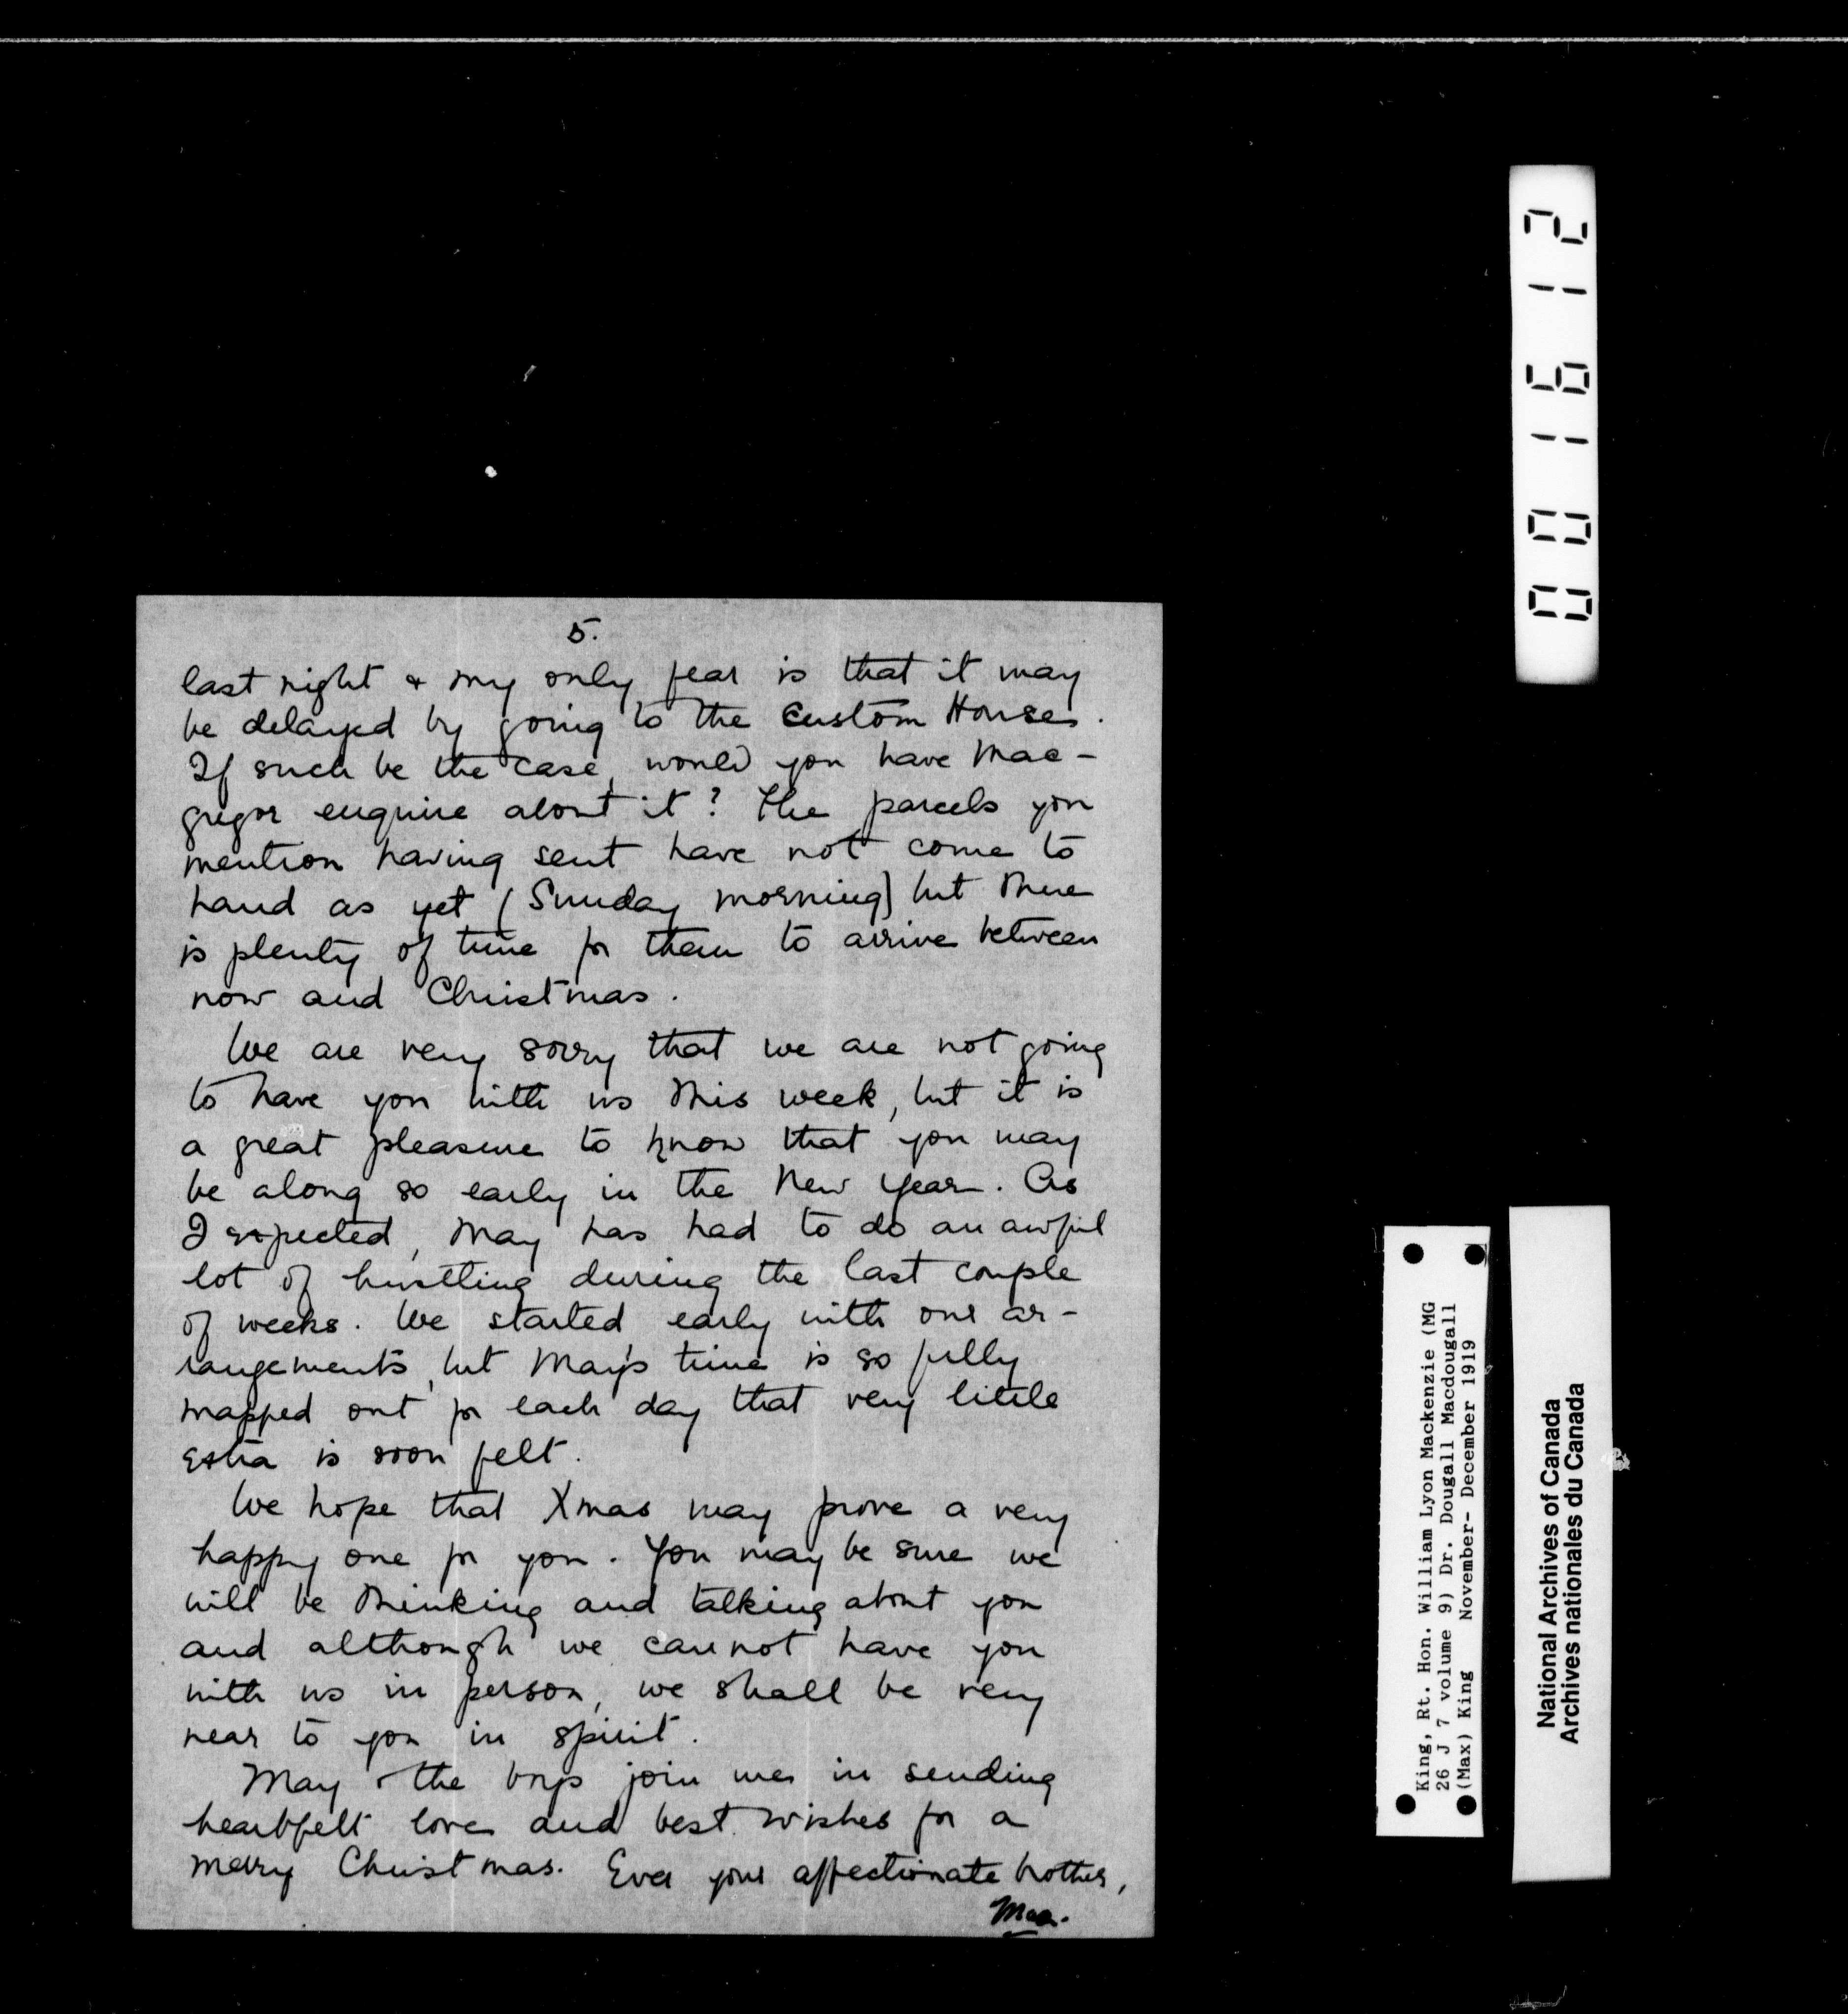 5.
last night & my only fear is that it may
be delayed by going to the Custom House.
If such be the case, would you have Mac-
gregor enquire about it? The parcels you
mention having sent have not come to
hand as yet (Sunday morning) but there
is plenty of time for them to arrive between
now and Christmas.
We are very sorry that we are not going
to have you with us this week, but it is
a great pleasure to know that you may
be along so early in the New Year. As
I expected, May has had to do an awful
lot of hustling during the last couple
of weeks. We started early with our ar-
rangements, but May's time is so fully
mapped out for each day that very little
extra is soon felt.
We hope that Xmas may prove a very
happy one for you. You may be sure we
will be thinking and talking about you
and although we cannot have you
with us in person, we shall be very
near to you in spirit.
May & the boys join me in sending
heartfelt love and best wishes for a
merry Christmas. Ever your affectionate brother,
Max.
001612
King, Rt. Hon. William Lyon Mackenzie (MG
26 J 7 volume 9) Dr. Dougall Macdougall
(Max) King November- December 1919
National Archives of Canada
Archives nationales du Canada